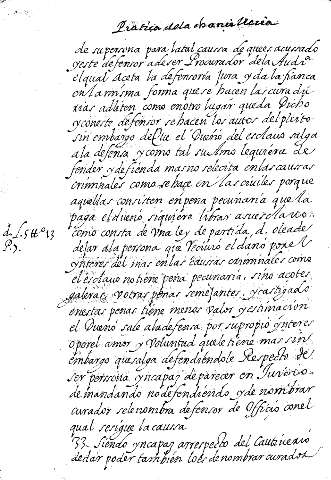 Pratica de la Chancilleria
de su persona para la tal caussa de que es acusado
y este defensor a de ser Procurador de la Audia
el qual Aceta la defensoria Jura y da la fianca
en la misma forma que se hacen las curadu
rias adliten como en otro lugar queda Dicho
y con este defensor se hacen los autos del pleito
sin embargo de que el Dueño del esclavo salga
a la defensa y como tal su Amo le quiera de
fender y defienda mas no se le cita en las caussas
criminales como se hace en las civiles porque
aquellas consisten en pena pecuniaria que la
paga el dueño si quiere librar a su esclavo
como consta de Una ley de partida, o le a de
dejar a la persona que Recivio el daño por el
ynteres del mas en las caussas criminales como
el esclavo no tiene pena pecuniaria, sino acotes
galeras, v otras penas semejantes, y castigado
en estas penas tiene menos valor y estimacion
el Dueño sale a la defensa por su propio ynteres
o por el amor y Voluntad que le tiene mas sin
embargo que salga defendiendole Respecto de
ser persona yncapaz de parecer en Juvicio
demandando no defendiendo, y de nombrar
curador se le nombra defensor de Officio con el
qual se sigue la caussa
33. Siendo yncapaz a respecto del Cautiverio
de dar poder tambien lo es de nombrar curador